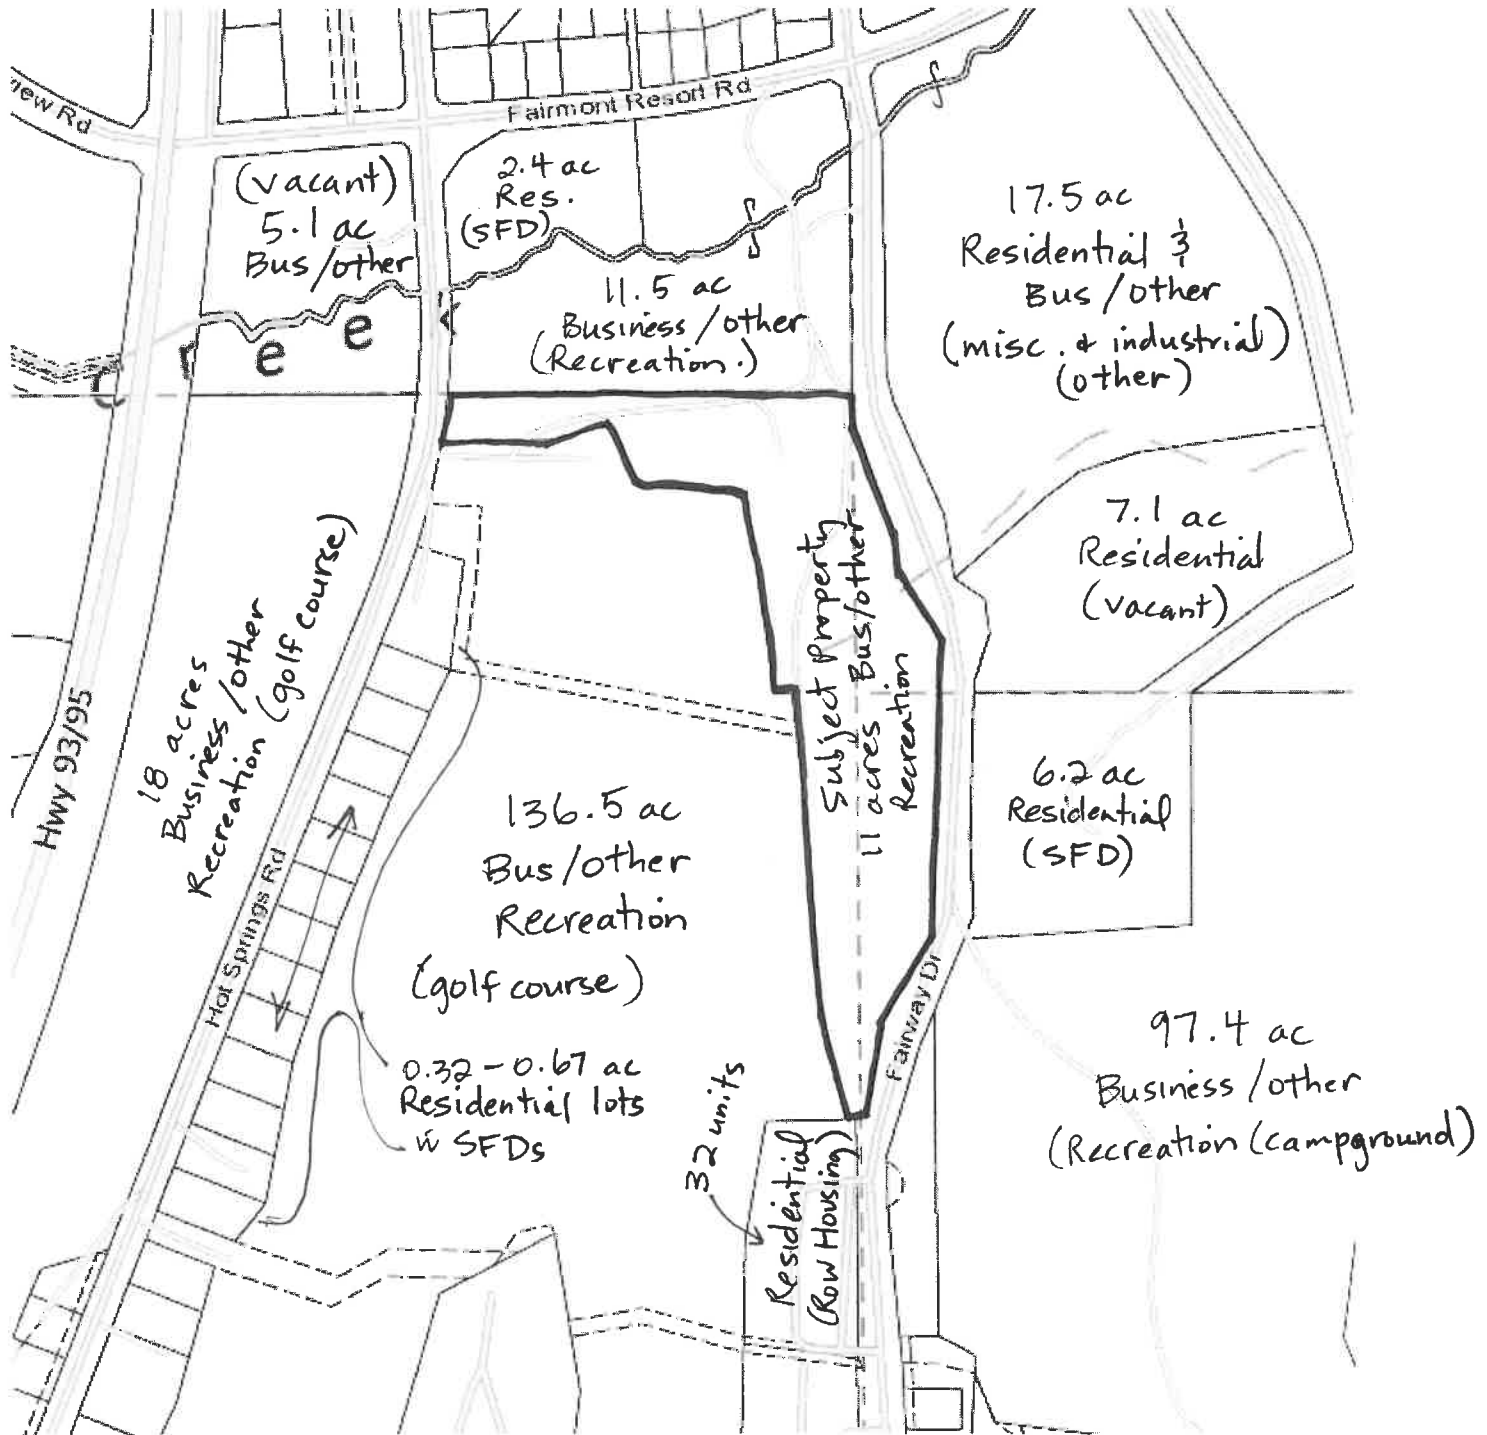 Fairmont Resort Rd
(vacant)
5.1 ac
Bus/other
2.4 ac
Res.
(SFD)
17.5 ac
Residential &
Bus/other
(misc. & industrial)
(other)
11.5 ac
Business/other
(Recreation.)
C r e e k
7.1 ac
Residential
(vacant)
Hwy 93/95
18 acres
Business/other
Recreation (golf course)
Hot Springs Rd
Subject Property
11 acres Bus/other
Recreation
6.2 ac
Residential
(SFD)
136.5 ac
Bus/other
Recreation
(golf course)
0.32-0.67 ac
Residential lots
w SFDs
Fairway Dr
97.4 ac
Business/other
(Recreation (campground)
32 units
Residential
(Row Housing)